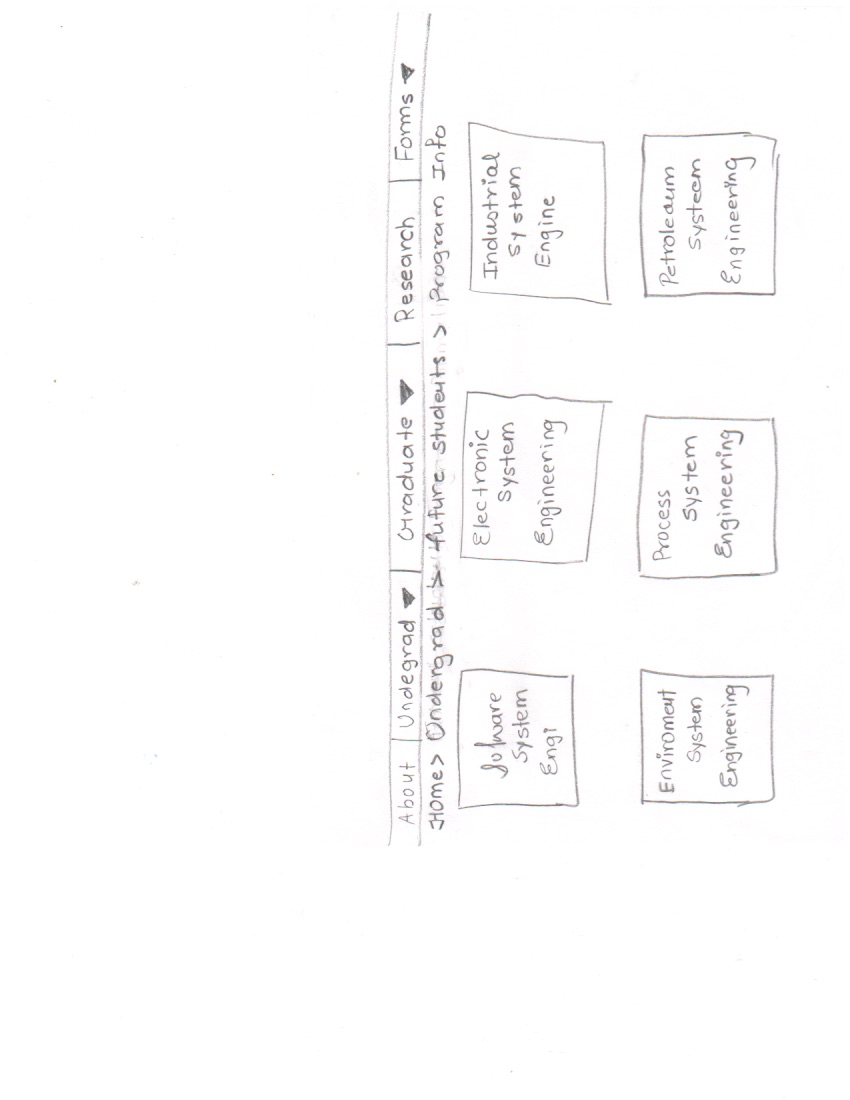 About Undegrad Graduate Research Forms
Home > Undergrad > future students > Program Info
Sofware
System
Engi
Electronic
System
Engineering
Industrial
System
Engine
Enviroment
System
Engineering
Process
System
Engineering
Petroleaum
Systeem
Engineering